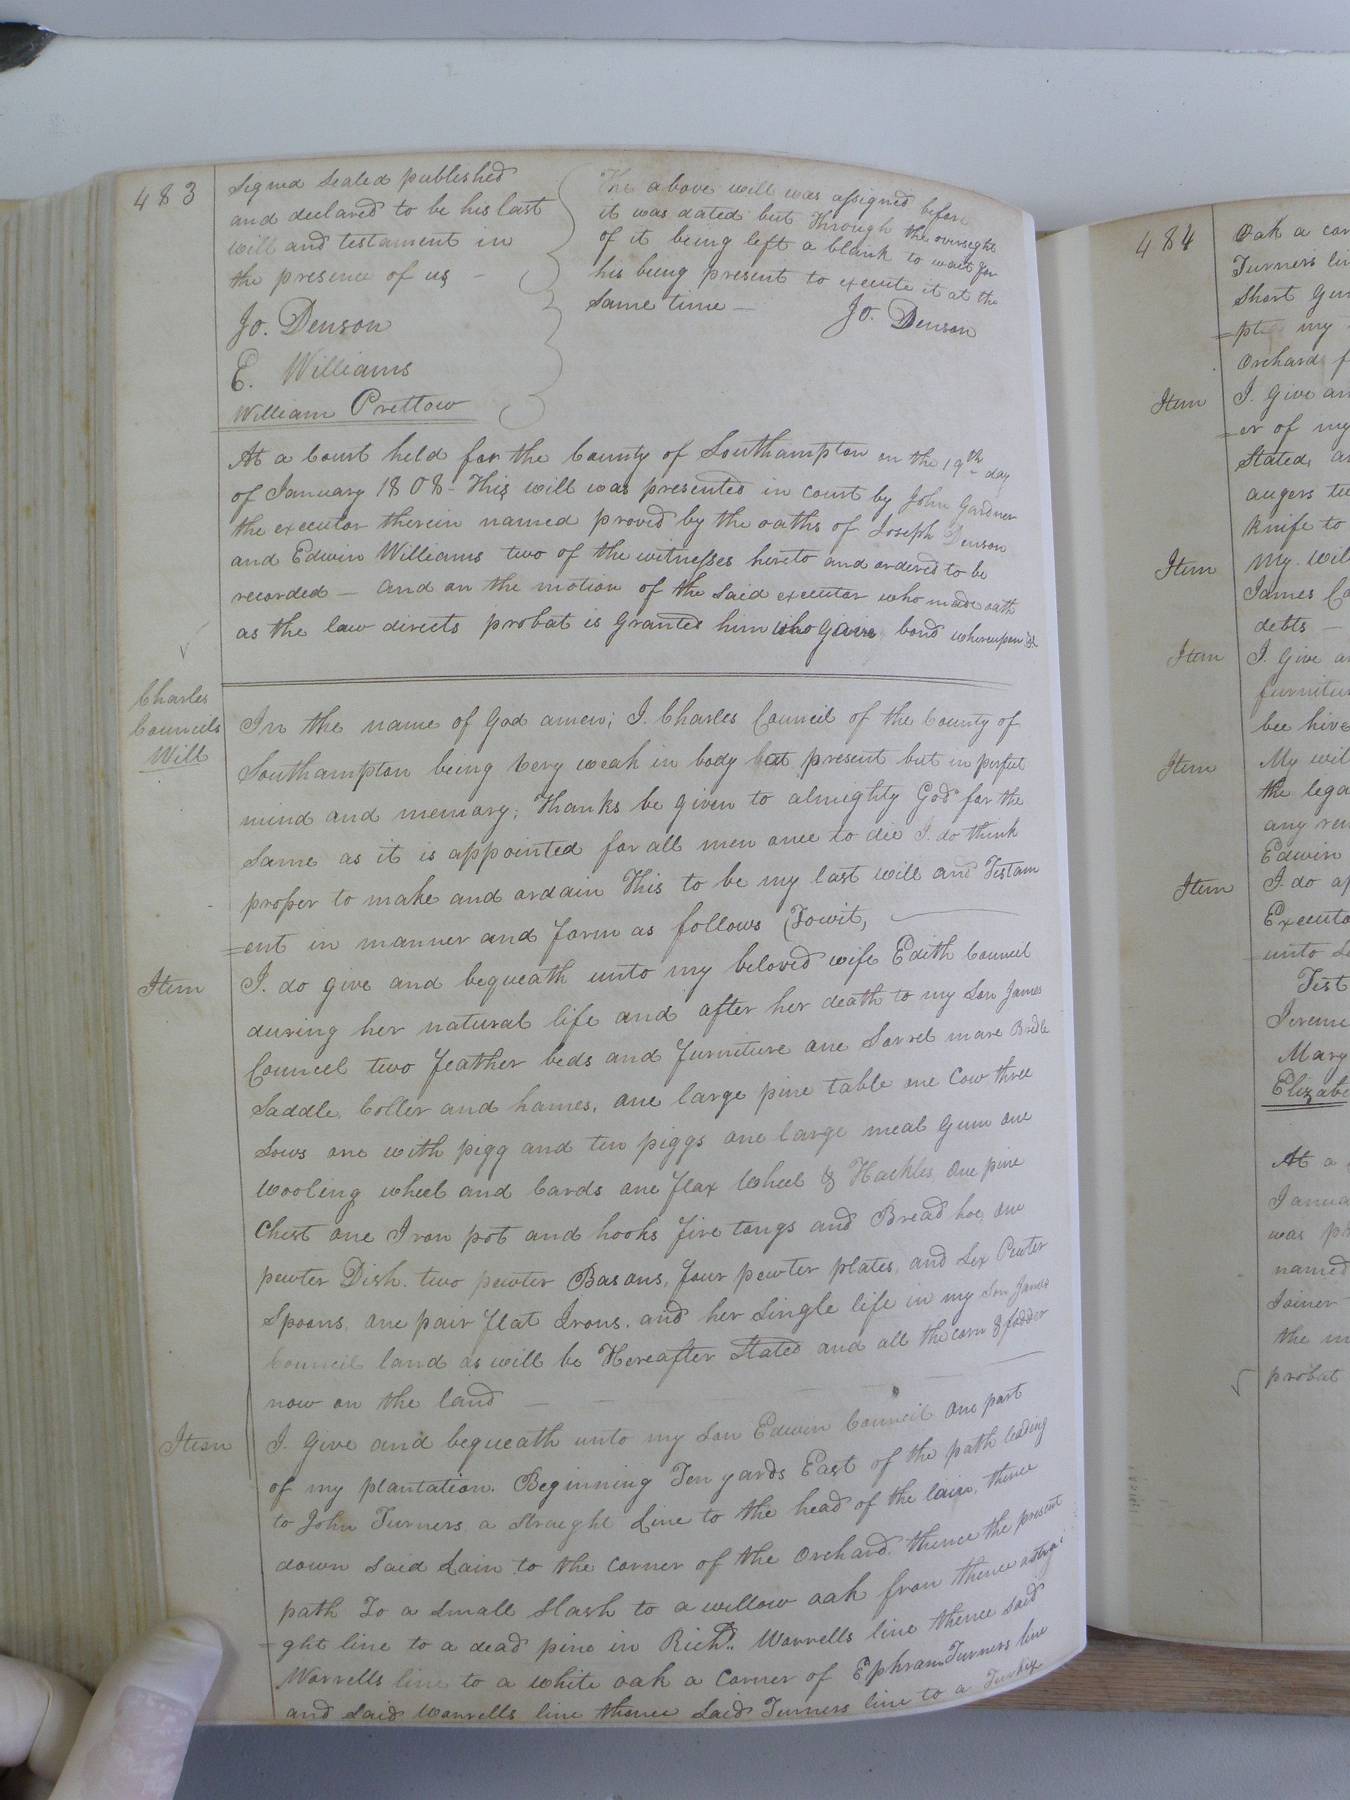 483
Signed Sealed published
and declared to be his last
will and testament in
the presence of us -
Jo. Denson
E. Williams
William Prettow
The above will was assigned before
it was dated but through the oversight
of it being left a blank to wait for
his being present to execute it at the
same time -
Jo. Denson
At a Court held for the County of Southampton on the 19th day
of January 1808 - This will was presented in court by John Gardner
the executor therein named proved by the oaths of Joseph Denson
and Edwin Williams two of the witnesses hereto and ordered to be
recorded - And on the motion of the said executor who made oath
as the law directs probat is granted him who gave bond whereupon &c
Charles
Councils
Will
In the name of God amen; I. Charles Council of the County of
Southampton being very weak in body but present but in perfect
mind and memory; Thanks be given to almighty God for the
same as it is appointed for all men once to die I. do think
proper to make and ordain This to be my last will and Testam
=ent in manner and form as follows (Towit,
Item
I. do give and bequeath unto my beloved wife Edith Council
during her natural life and after her death to my Son James
Council two feather beds and furniture one Sorrel mare Bridle
Saddle, Coller and hames, one large pine table one Cow three
Sows one with pigg and ten piggs one large meal Gum one
Wooling wheel and Cards one flax Wheel & Hackles, One pine
Chest one Iron pot and hooks fire tongs and Bread hoe, one
pewter Dish. two pewter Basons, four pewter plates, and Six Pewter
Spoons, one pair flat Irons. and her single life in my Son James
Council land as will be Hereafter Stated and all the corn & fodder
now on the land -
Item
I. Give and bequeath unto my Son Edwin Council one part
of my plantation. Beginning Ten yards East of the path leading
to John Turners a straight Line to the head of the lain, thence
down said Lain to the corner of the Orchard. thence the present
path To a small Slash to a willow oak from thence a strai
=ght line to a dead pine in Richd. Worrells line thence said
Worrells line to a white oak a corner of Ephram Turners line
and said Worrells line thence said Turners line to a Turkey
484
Oak a cor
Turners lin
Short Gu
my
Orchard f
Item
I. Give an
=er of my
Stated, a
augers tw
knife to
Item
My wil
James Co
debts -
Item
I. Give a
furnitur
bee hive
Item
My wil
the lega
any re
Edwin
Item
I. do ap
Executo
=unto S
Test
Jereme
Mary
Elizabe
At a
Janua
was p
named
Joiner
the m
probat